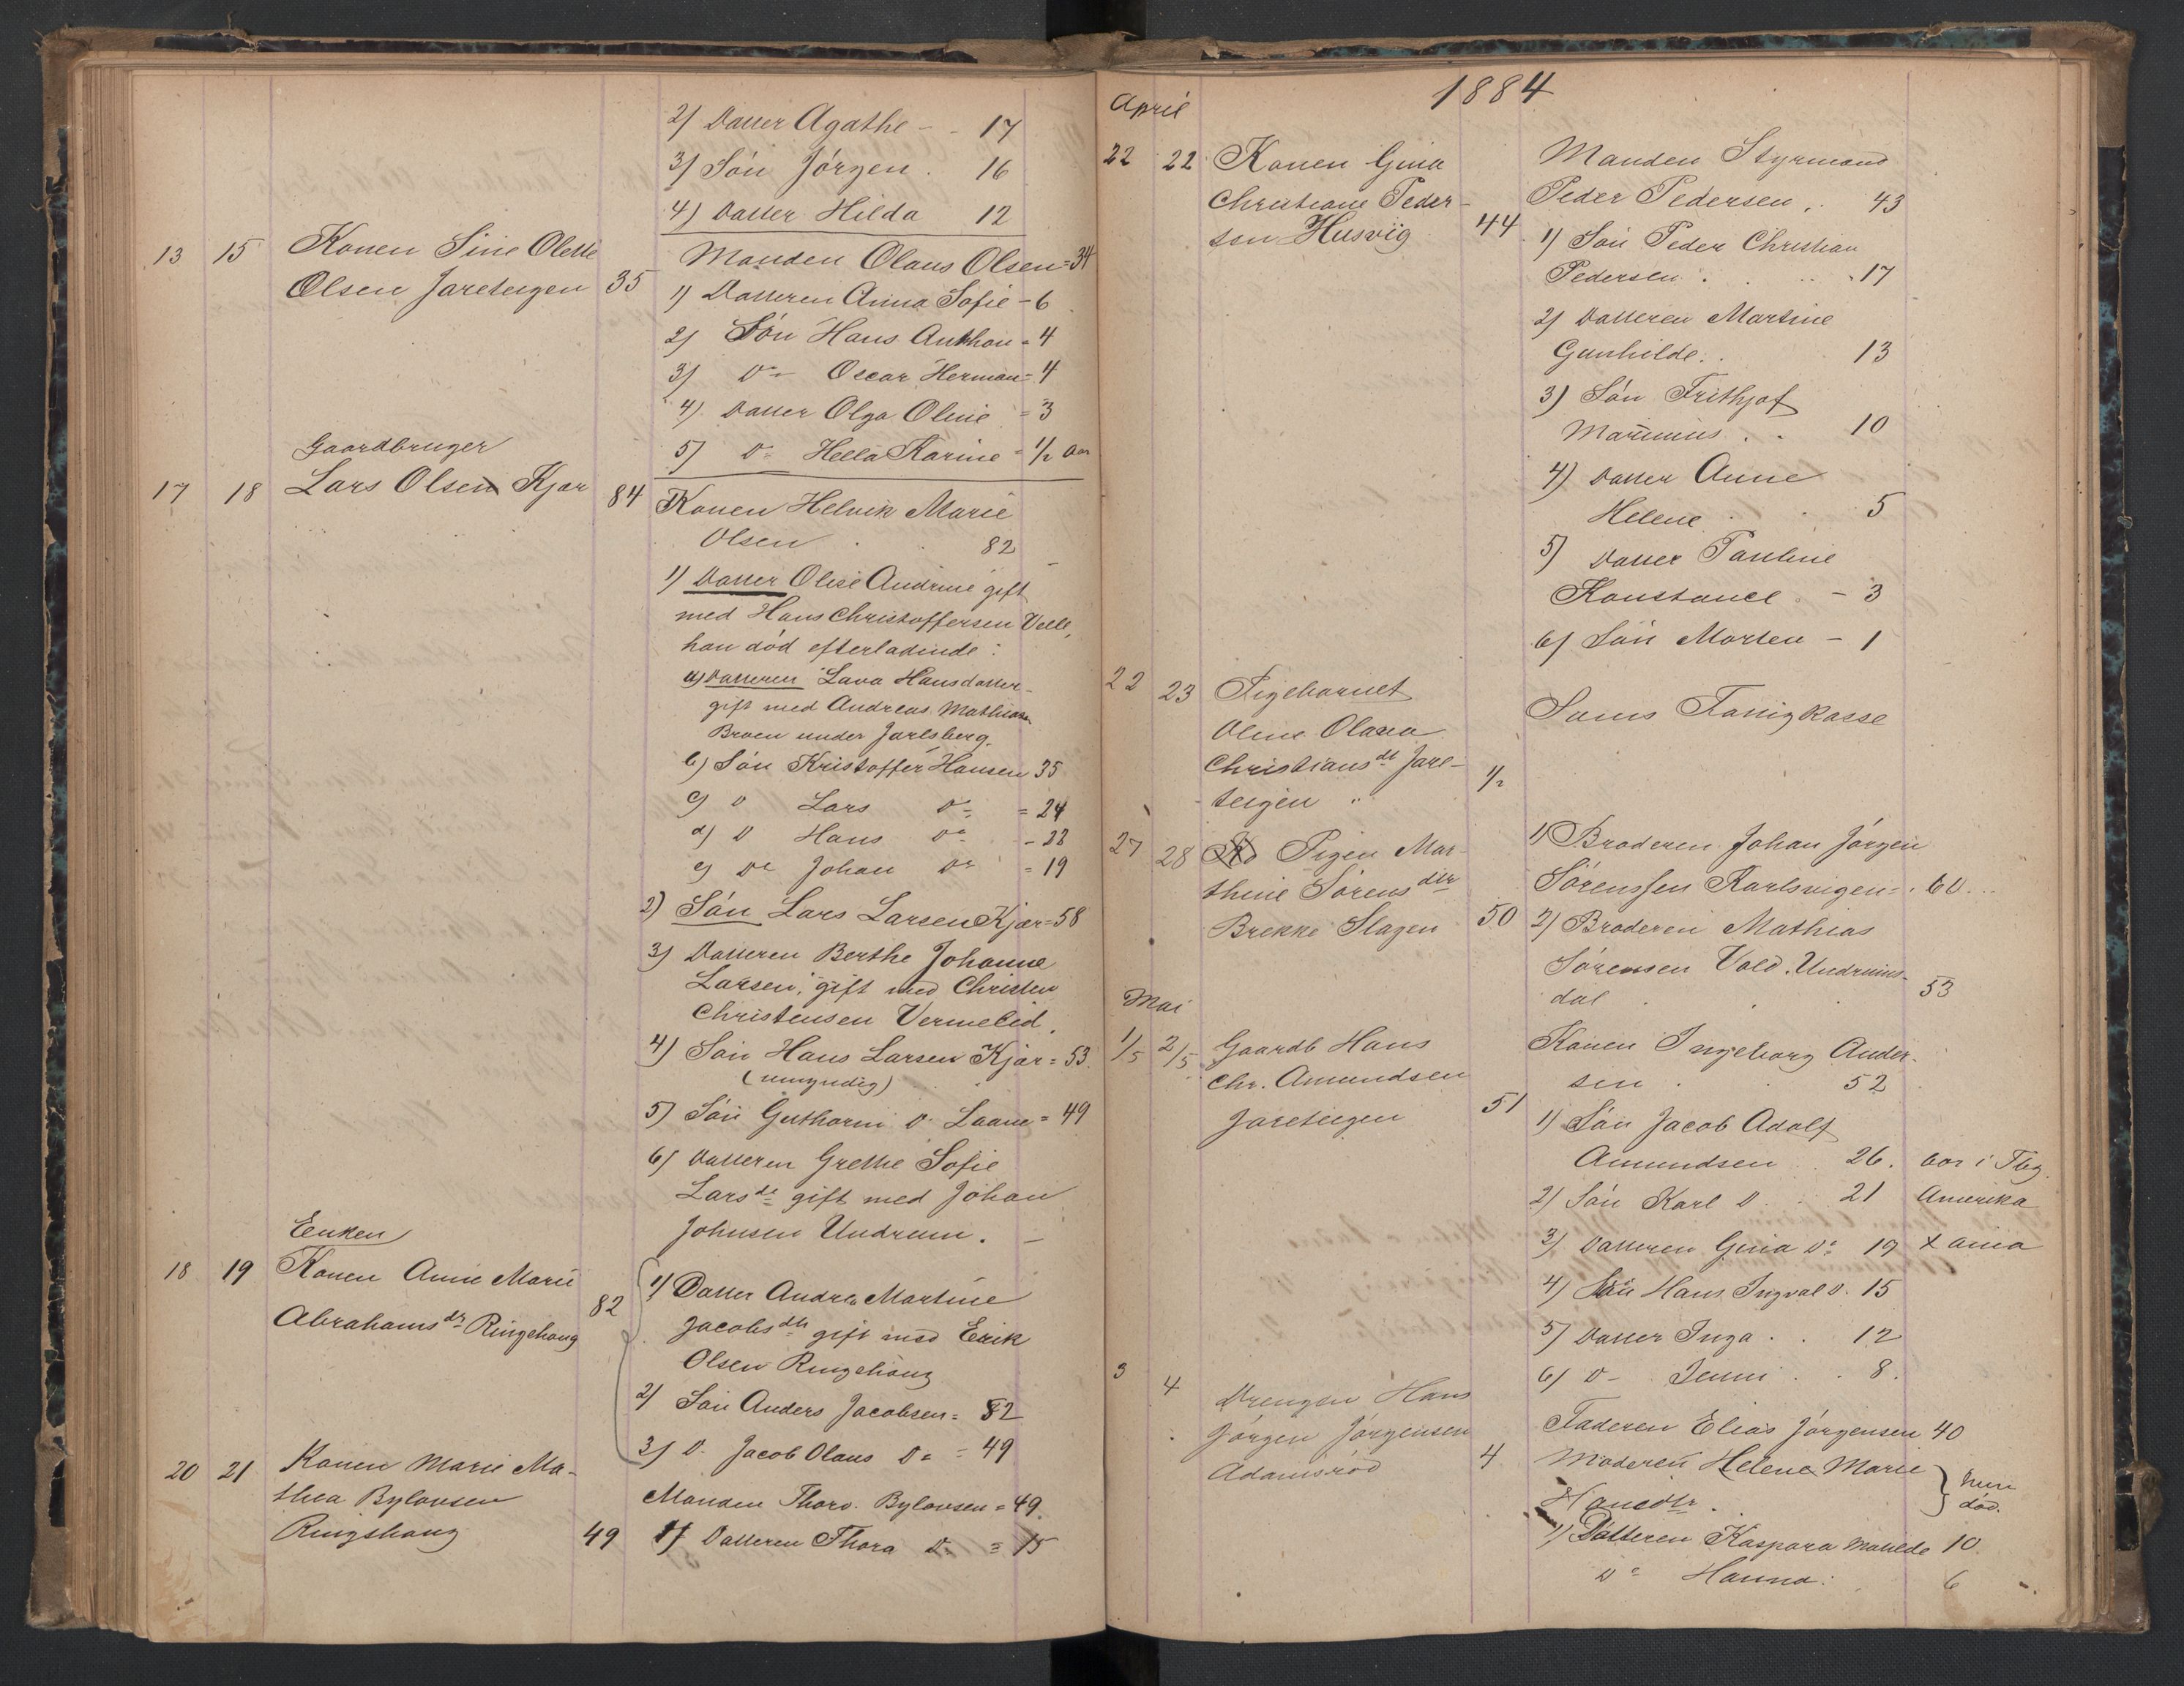 2) Datter Agathe - - 17
3) Søn Jörgen . 16
4) Datter Hilda 12
13 15 Konen Sine Olette
Olsen Jareteigen 35
Manden Olaus Olsen = 34
1) Datteren Anna Sofie - 6
2) Sön Hans Anthon = 4
3) Do Oscar Herman = 4
4) Datter Olga Oline = 3
5) Do Hella Karine = 1/2 Aar
Gaardbruger
17 18 Lars Olsen Kjær 84
Konen Helvik Marie
Olsen . 82
1) Datter Olise Andrine gift
med Hans Christoffersen
han död efterladende :
a) Datteren Lava Hansdatter
gift med Andreas Mathisen
Broen under Jarlsberg.
b) Sön Kristoffer Hansen 35
c) D Lars Do = 24
d) D Hans Do - 22
e) Do Johan Do = 19
2) Sön Lars Larsen Kjær = 58
3) Datteren Berthe Johanne
Larsen, gift med Christen
Christensen Vermelid.
4) Sön Hans Larsen Kjær = 53.
(umyndig)
5) Sön Guthorm D. Laane = 49
6) Datteren Grethe Sofie
Larsdr gift med Johan
Johnsen Undrum. -
Enken
18 19 Konen Anne Marie
Abrahamsdr Ringshaug 82
1) Datter Andrea Martine
Jacobsdtr gift med Erik
Olsen Ringshaug
2) Sön Anders Jacobsen = 52
3) D. Jacob Olaus Do = 49
20 21 Konen Marie Ma-
thea Bylovsen
Ringshaug 49
Manden Thorv. Bylovsen = 49.
1) Datteren Thora D. = 15
1884
April
22 22 Konen Gina
Christiane Peder-
sen Husvig 44
Manden Styrmand
Peder Pedersen . 43
1) Sön Peder Christian
Pedersen . 17
2) Datteren Martine
Gunhilde . 13
3) Sön Frithjof
Marinius . . 10
4) Datter Anne
Helene . 5
5) Datter Pauline
Konstance . - 3
6) Sön Morten - 1
22 23 Pigebarnet
Oline Olava
Christiansdt Jare-
teigen " 1/2
Sems Fattigkasse
27 28 Pigen Mar-
thine Sörensdtr
Brekke Slagen 50
1) Broderen Johan Jörgen
Sörenssen Karlsvigen = 60
2) Broderen Mathias
Sörensen Vold. Undrums-
dal . . 53
Mai
1/5 2/5 Gaardb Hans
Chr. Amundsen
Jareteigen 51
Konen Ingeborg Ander-
sen . 52
1) Sön Jacob Adolf
Amundsen . 26. bor i Tbg.
2) Sön Karl D. . 21 Amerika
3) Datteren Gina Do 19 Xania
4) Sön Hans Ingval D. 15
5) Datter Inga . . 12
6) D - Jenni . . 8.
3 4 Drengen Hans
Jörgen Jörgensen
Adamsröd 4
Faderen Elias Jörgensen 40
Moderen Helene Marie
Hansdtr . } hun död.
1) Datteren Kaspara Matilde 10.
Do Hanna : 6